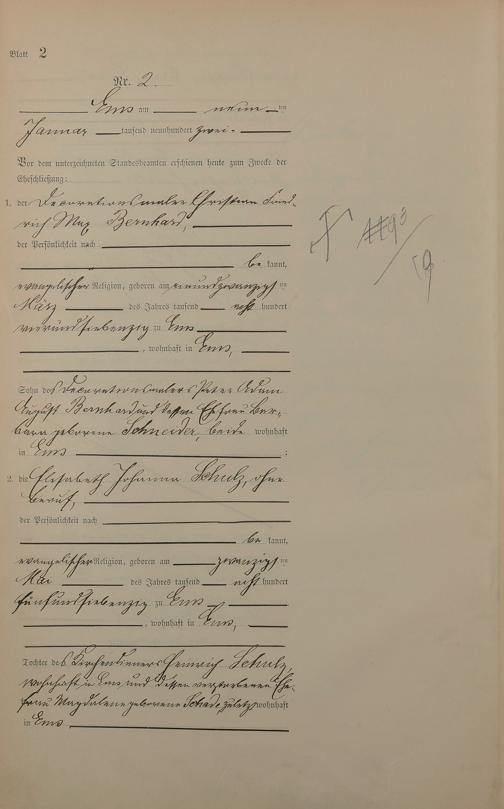 Blatt 2
Nr. 2.
Ems am neun ten
Januar tausend neunhundert zwei
Vor dem unterzeichneten Standesbeamten erschienen heute zum Zwecke der
Eheschließung:
1. der Decorationsmaler Christian Fried-
rich Max Bernhard,
der Persönlichkeit nach
be kannt,
evangelischer Religion, geboren am neunundzwanzigsten
März des Jahres tausend acht hundert
vierundsiebenzig zu Ems
, wohnhaft in Ems,
Sohn des Decorationsmalers Peter Adam
August Bernhard und dessen Ehefrau Bar-
bara geborene Schneider, beide wohnhaft
in Ems ;
2. die Elisabeth Johanna Schulz, ohne
Beruf,
der Persönlichkeit nach
be kannt,
evangelischer Religion, geboren am zwanzigsten
Mai des Jahres tausend acht hundert
fünfundsiebenzig zu Ems
, wohnhaft in Ems,
Tochter des Kirchendieners Heinrich Schulz,
wohnhaft in Ems und dessen verstorbenen Ehe-
frau Magdalene geborene Schade, zuletzt wohnhaft
in Ems